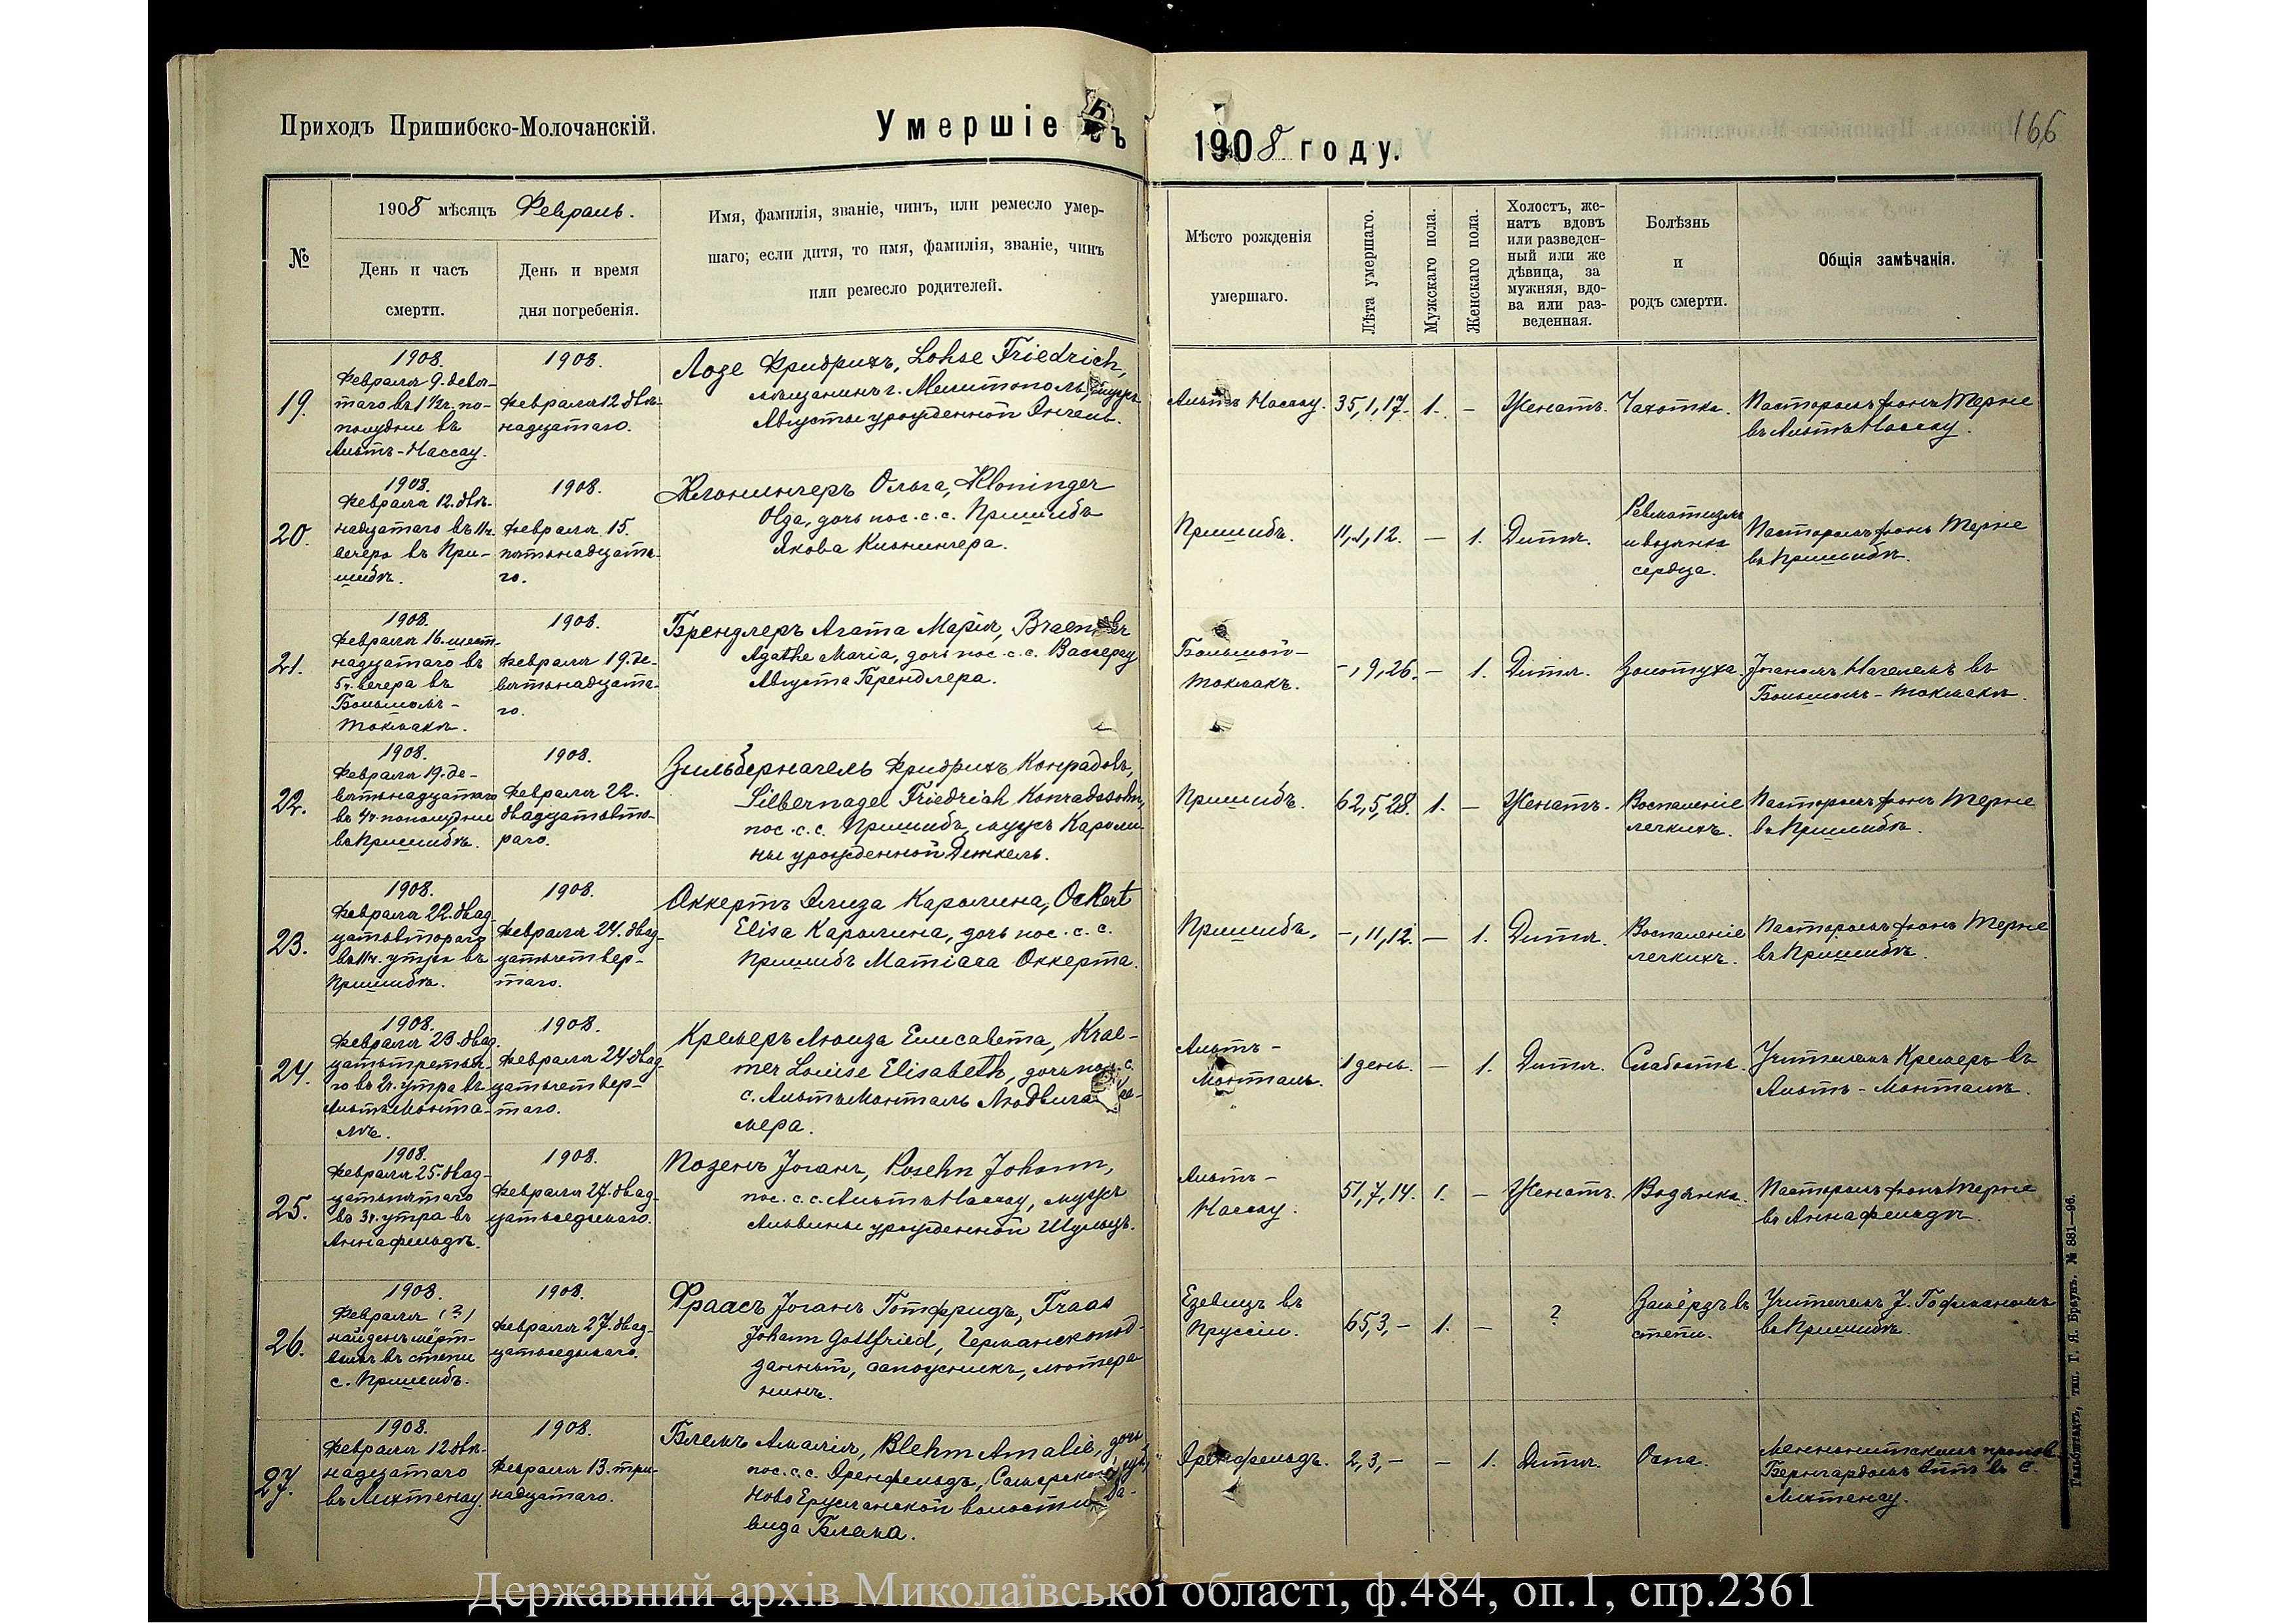 Приходъ Пришибско-Молочанскій.
Умершіе въ
1908 году.
166
№
1908 мѣсяцъ Февраль.
День и часъ
смерти.
День и время
дня погребенія.
Имя, фамилія, званіе, чинъ, или ремесло умер-
шаго; если дитя, то имя, фамилія, званіе, чинъ
или ремесло родителей.
Мѣсто рожденія
умершаго.
Лѣта умершаго.
Мужскаго пола.
Женскаго пола.
Холостъ, же-
натъ вдовъ
или разведен-
ный или же
дѣвица, за
мужняя, вдо-
ва или раз-
веденная.
Болѣзнь
и
родъ смерти.
Общія замѣчанія.
19.
1908.
Февраля 9. девя-
таго въ 1½ч. по-
полудни въ
Альтъ-Нассау.
1908.
Февраля 12 двѣ-
надцатаго.
Лозе Фридрихъ, Lohse Friedrich,
мѣщанинъ г. Мелитополь, мужъ
Августы урожденной Энгель.
Альтъ Нассау.
35,1,17.
1.
–
Женатъ.
Чахотка.
Пасторомъ фонъ Терне
въ Альтъ Нассау.
20.
1908.
Февраля 12. двѣ-
надцатаго въ 11ч.
вечера въ При-
шибѣ.
1908.
Февраля 15.
пятьнадцата-
го.
Клонингеръ Ольга, Kloninger
Olga, дочь пос. с. с. Пришибъ
Якова Клонингера.
Пришибъ.
11,1,12.
–
1.
Дитя.
Ревматизмъ
и водянка
сердца.
Пасторомъ фонъ Терне
въ Пришибѣ.
21.
1908.
Февраля 16. шест-
надцатаго въ
5ч. вечера въ
Большомъ-
Токмакѣ.
1908.
Февраля 19. де-
вятьнадцата-
го.
Брендлеръ Агата Марія, Braendler
Agathe Maria, дочь пос. с. с. Вассерау
Августа Брендлера.
Большой-
Токмакъ.
–,9,26.
–
1.
Дитя.
Золотуха.
Іоганомъ Нагелемъ въ
Большомъ-Токмакѣ.
22.
1908.
Февраля 19. де-
вятьнадцатаго
въ 4ч. пополудни
въ Пришибѣ.
1908.
Февраля 22.
двадцатьвто-
раго.
Зильбернагель Фридрихъ Конрадовъ,
Silbernagel Friedrich Konradssohn,
пос. с. с. Пришибъ, мужъ Кароли-
ны урожденной Дежкель.
Пришибъ.
62,5,28.
1.
–
Женатъ.
Воспаленіе
легкихъ.
Пасторомъ фонъ Терне
въ Пришибѣ.
23.
1908.
Февраля 22. двад-
цатьвтораго
въ 11ч. утра въ
Пришибѣ.
1908.
Февраля 24. двад-
цатьчетвер-
таго.
Оккертъ Элиза Каролина, Ockert
Elisa Каролина, дочь пос. с. с.
Пришибъ Матіаса Оккерта.
Пришибъ.
–,11,12.
–
1.
Дитя.
Воспаленіе
легкихъ.
Пасторомъ фонъ Терне
въ Пришибѣ.
24.
1908.
Февраля 23. двад-
цатьтретья-
го въ 2ч. утра въ
Альтъ Монта-
лѣ.
1908.
Февраля 24 двад-
цатьчетвер-
таго.
Кремеръ Люиза Елисавета, Krae-
mer Louise Elisabeth, дочь пос. с.
с. Альтъ Монталь Людвига Кре-
мера.
Альтъ-
Монталь.
1 день.
–
1.
Дитя.
Слабость.
Учителемъ Кремеръ въ
Альтъ-Монталѣ.
25.
1908.
Февраля 25. двад-
цатьпятаго
въ 3ч. утра въ
Аннафельдѣ.
1908.
Февраля 27. двад-
цатьседьмаго.
Позенъ Іоганъ, Posehn Johann,
пос. с. с. Альтъ Нассау, мужъ
Альвины урожденной Шульцъ.
Альтъ-
Нассау.
51,7,14.
1.
–
Женатъ.
Водянка.
Пасторомъ фонъ Терне
въ Аннафельдѣ.
26.
1908.
Февраля (?)
найденъ мёрт-
вымъ въ степи
с. Пришибъ.
1908.
Февраля 27. двад-
цатьседьмаго.
Фраасъ Іоганъ Готфридъ, Fraas
Johann Gottfried, Германскоподд-
данный, сапожникъ, лютера-
нинъ.
Езевицъ въ
Пруссіи.
65,3,–
1.
–
?
Замёрзъ въ
степи.
Учителемъ J. Гофманомъ
въ Пришибѣ.
27.
1908.
Февраля 12 двѣ-
надцатаго
въ Лихтенау.
1908.
Февраля 13. три-
надцатаго.
Блемъ Амалія, Blehm Amalie, дочь
пос. с. с. Эренфельдъ, Самарской губ.,
Ново Ерусланской волости Да-
вида Блема.
Эренфельдъ.
2,3,–
–
1.
Дитя.
Оспа.
Меннонитскимъ пропов.
Бернгардомъ Эппъ въ с.
Лихтенау.
Гальбштадтъ, тип. Г. Я. Браунъ. № 881—96.
Державний архів Миколаївської області, ф.484, оп.1, спр.2361